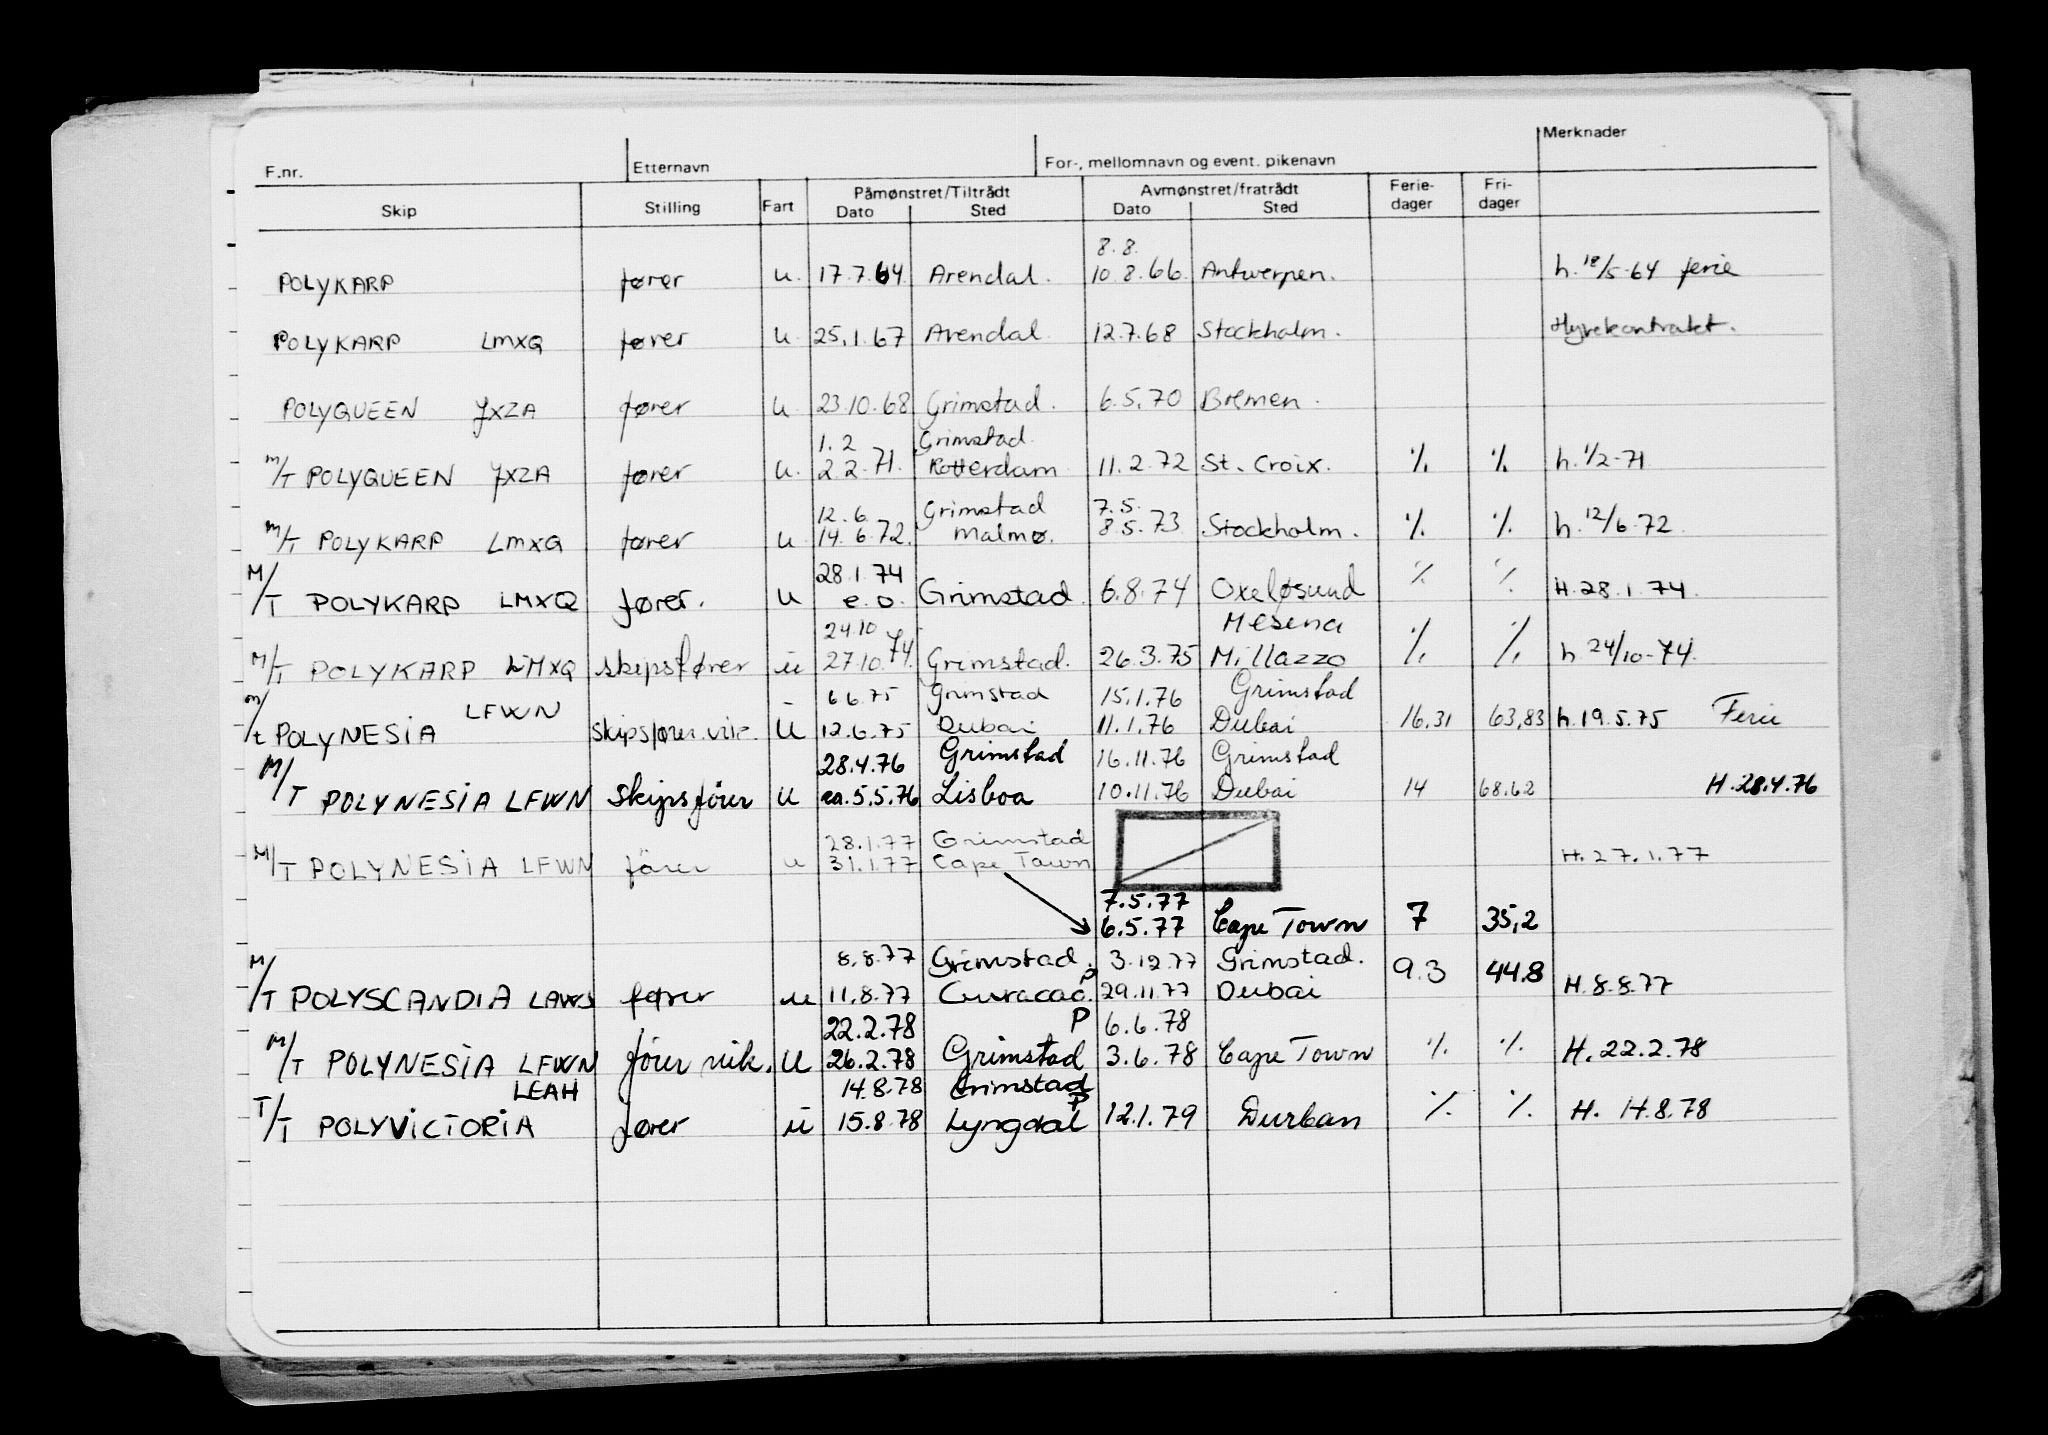 F.nr. Etternavn For-, mellomnavn og event. pikenavn Merknader
Skip Stilling Fart Påmønstret/Tiltrådt Avmønstret/fratrådt Ferie-dager Fri-dager
Dato Sted Dato Sted
8.8.
POLYKARP fører u. 17.7.64. Arendal. 10.8.66. Antwerpen. h. 18/5-64 ferie
POLYKARP LMXQ fører u. 25.1.67 Arendal. 12.7.68 Stockholm. Hyrekontrakt.
POLYQUEEN JXZA fører u. 23.10.68 Grimstad. 6.5.70 Bremen.
1.2 Grimstad.
M/T POLYQUEEN JXZA fører u. 2.2.71. Rotterdam 11.2.72 St. Croix. ٪ ٪ h. 1/2-71
12.6. Grimstad 7.5.
M/T POLYKARP LMXQ fører u 14.6.72. Malmø. 8.5.73 Stockholm. ٪ ٪ h. 12/6-72.
28.1.74
M/T POLYKARP LMXQ fører. u e.o. Grimstad 6.8.74 Oxeløsund ٪ ٪ H.28.1.74.
24.10 Mesena
M/T POLYKARP LMXQ skipsfører u 27.10.74. Grimstad. 26.3.75 Millazzo ٪ ٪ h 24/10-74.
LFWN 6.6.75 Grimstad 15.1.76 Grimstad
m/t POLYNESIA skipsfører vik. u 12.6.75 Dubai 11.1.76 Dubai 16,31 63,83 h.19.5.75 Ferie
28.4.76 Grimstad 16.11.76 Grimstad
M/T POLYNESIA LFWN Skipsfører u ca.5.5.76 Lisboa 10.11.76 Dubai 14 68.62 H.28.4.76
28.1.77 Grimstad
M/T POLYNESIA LFWN fører u 31.1.77 Cape Town H.27.1.77
7.5.77
6.5.77 Cape Town 7 35,2
8.8.77 Grimstad. 3.12.77 Grimstad.
M/T POLYSCANDIA fører u 11.8.77 Curacao. P 29.11.77 Dubai 9.3 44.8 H.8.8.77
22.2.78 P 6.6.78
M/T POLYNESIA LFWN fører vik. u 26.2.78 Grimstad 3.6.78 Cape Town ٪ ٪ H.22.2.78
LEAH 14.8.78 Grimstad
T/T POLYVICTORIA fører u 15.8.78 Lyngdal P 12.1.79 Durban ٪ ٪ H. 14.8.78